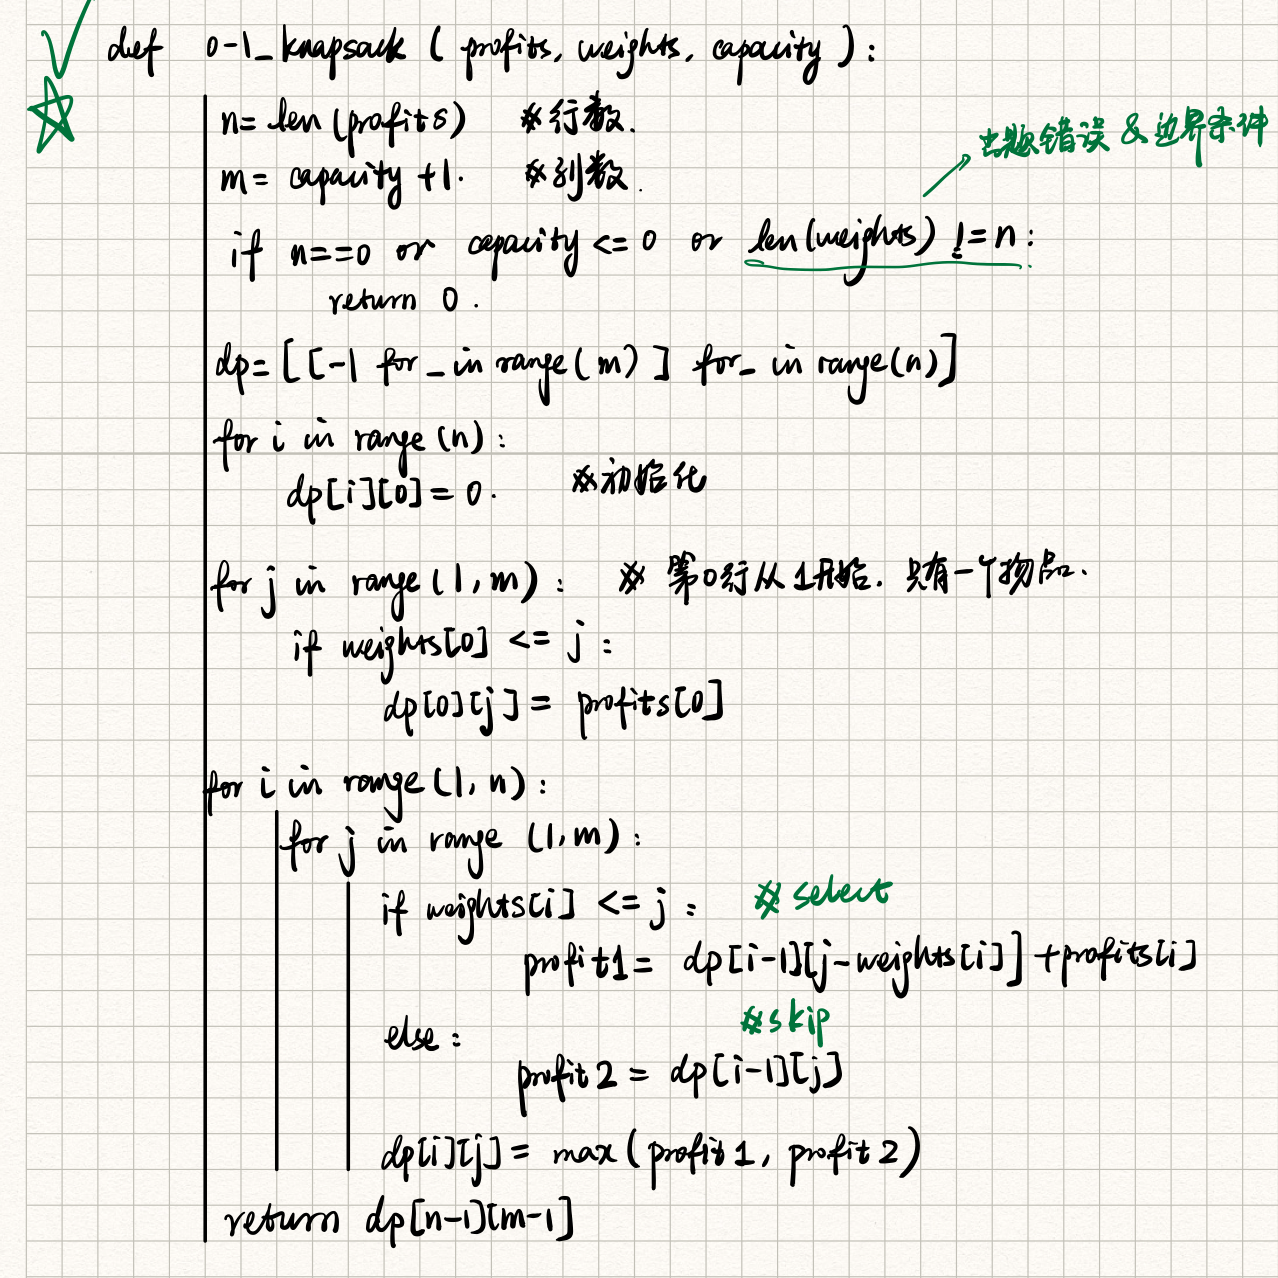 def 0-1_knapsack ( profits, weights, capacity ) :
n= len (profits) #行数.
m= capacity +1. #列数.
出题错误 & 边界条件
if n==0 or capacity <= 0 or len(weights) != n :
return 0 .
dp= [ [-1 for _ in range( m ) ] for _ in range(n) ]
for i in range (n) :
dp[i][0] = 0. #初始化
for j in range ( 1, m ) : # 第0行从1开始. 只有一个物品.
if weights[0] <= j :
dp[0][j] = profits[0]
for i in range (1, n) :
for j in range (1, m) :
if weights[i] <= j : # select
profit1 = dp[i-1][j-weights[i]] + profits[i]
else : #skip
profit2 = dp[i-1][j]
dp[i][j] = max ( profit1, profit2 )
return dp[n-1][m-1]